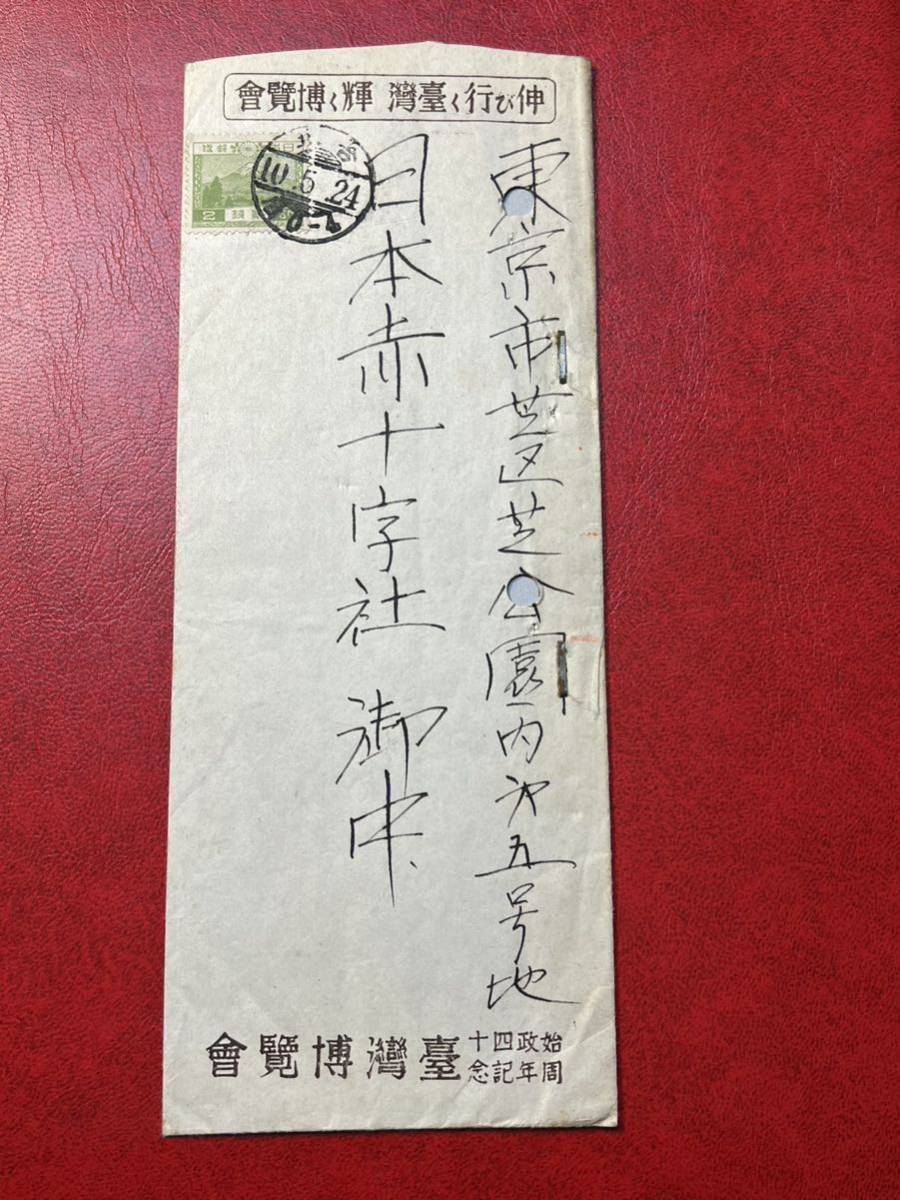 伸び行く臺灣 輝く博覽會
10.5.24
2
東京市芝区芝公園内第五号地
日本赤十字社 御中
始政四十
周年記念
臺灣博覽會